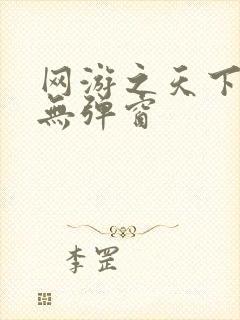 网游之天下
無弹窗
李罡